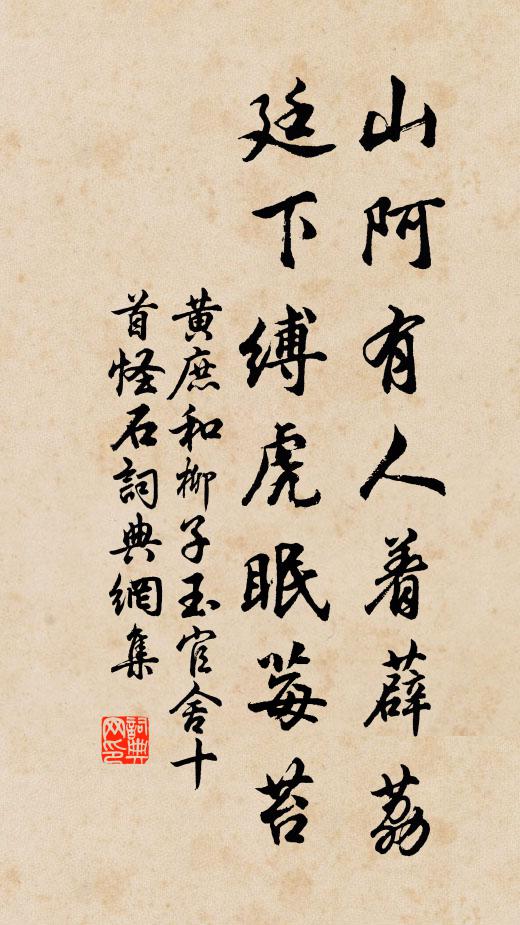 山阿有人着薜荔
廷下縛虎眠莓苔
黃庶和柳子玉官舍十
首怪石詞典網集
詞典網印